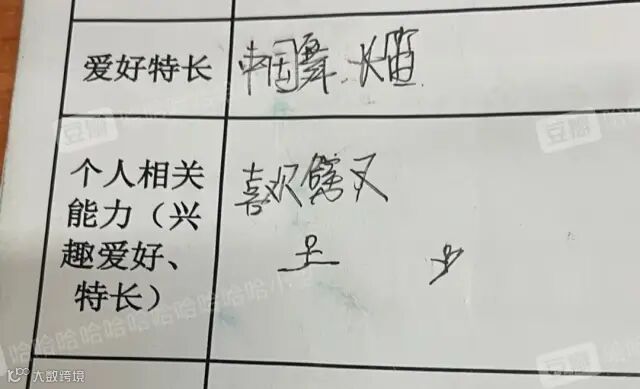 爱好特长 中国舞、长笛
个人相关
能力（兴
趣爱好、
特长）
喜欢劈叉
豆瓣
豆瓣
豆瓣
哈哈哈哈哈哈哈哈哈小组
大数跨境